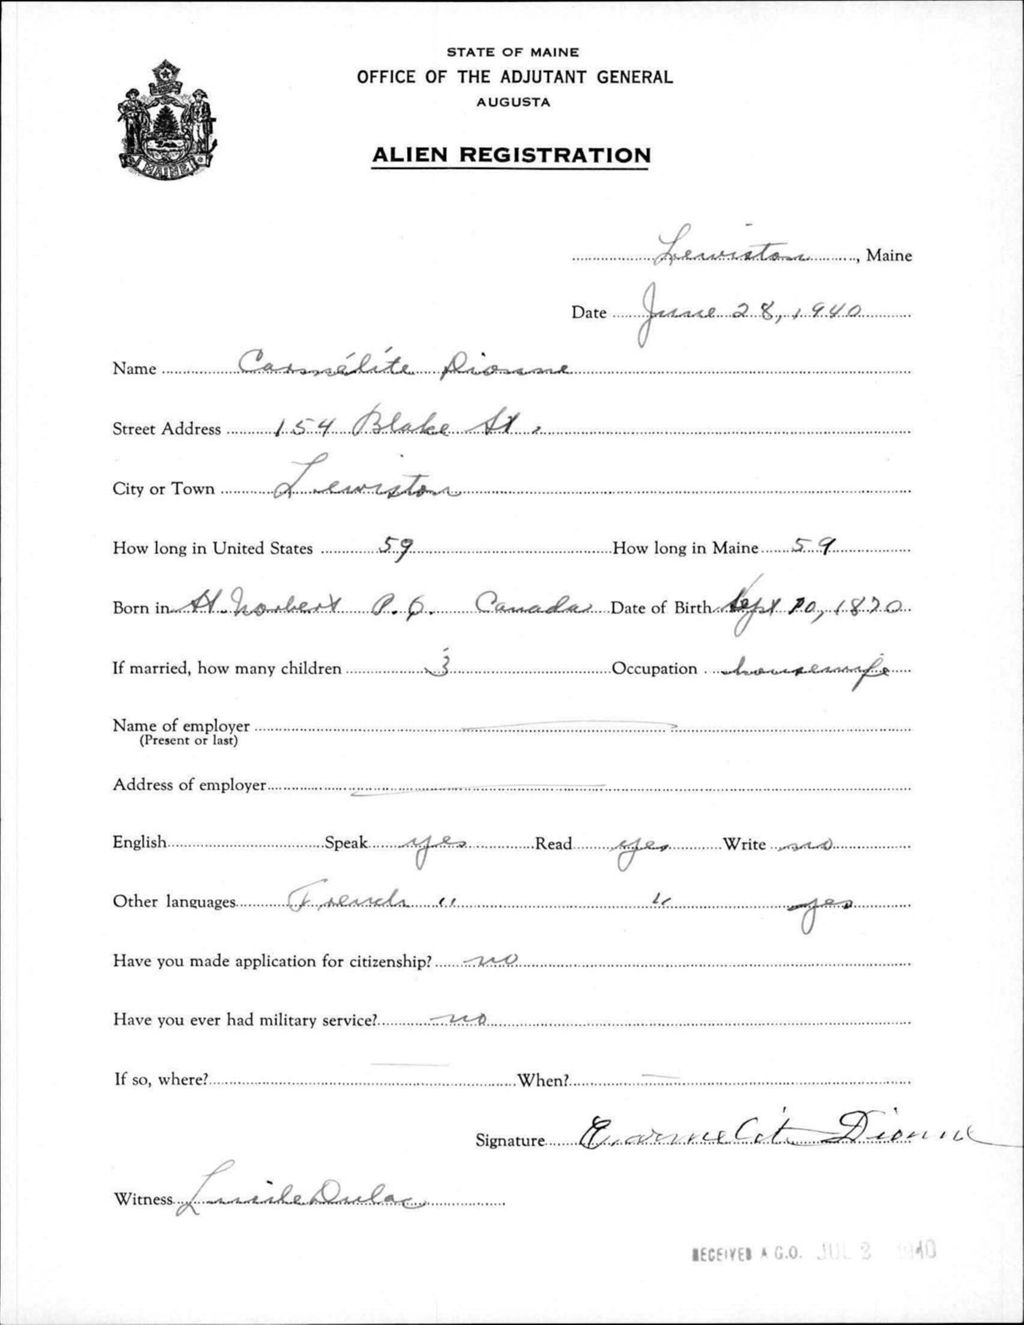 STATE OF MAINE
OFFICE OF THE ADJUTANT GENERAL
AUGUSTA
ALIEN REGISTRATION
MAINE
Lewiston, Maine
Date June 28, 1940
Name Carmélite Dionne
Street Address 154 Blake St.
City or Town Lewiston
How long in United States 59 How long in Maine 59
Born in St. Norbert P.Q. Canada Date of Birth Sept 20, 1870
If married, how many children 3 Occupation housewife
Name of employer
(Present or last)
Address of employer
English Speak yes Read yes Write no
Other languages French " " yes
Have you made application for citizenship? no
Have you ever had military service? no
If so, where? When?
Signature Dionne
Witness Lucile Dulac
RECEIVED A.G.O. JUL 3 1940